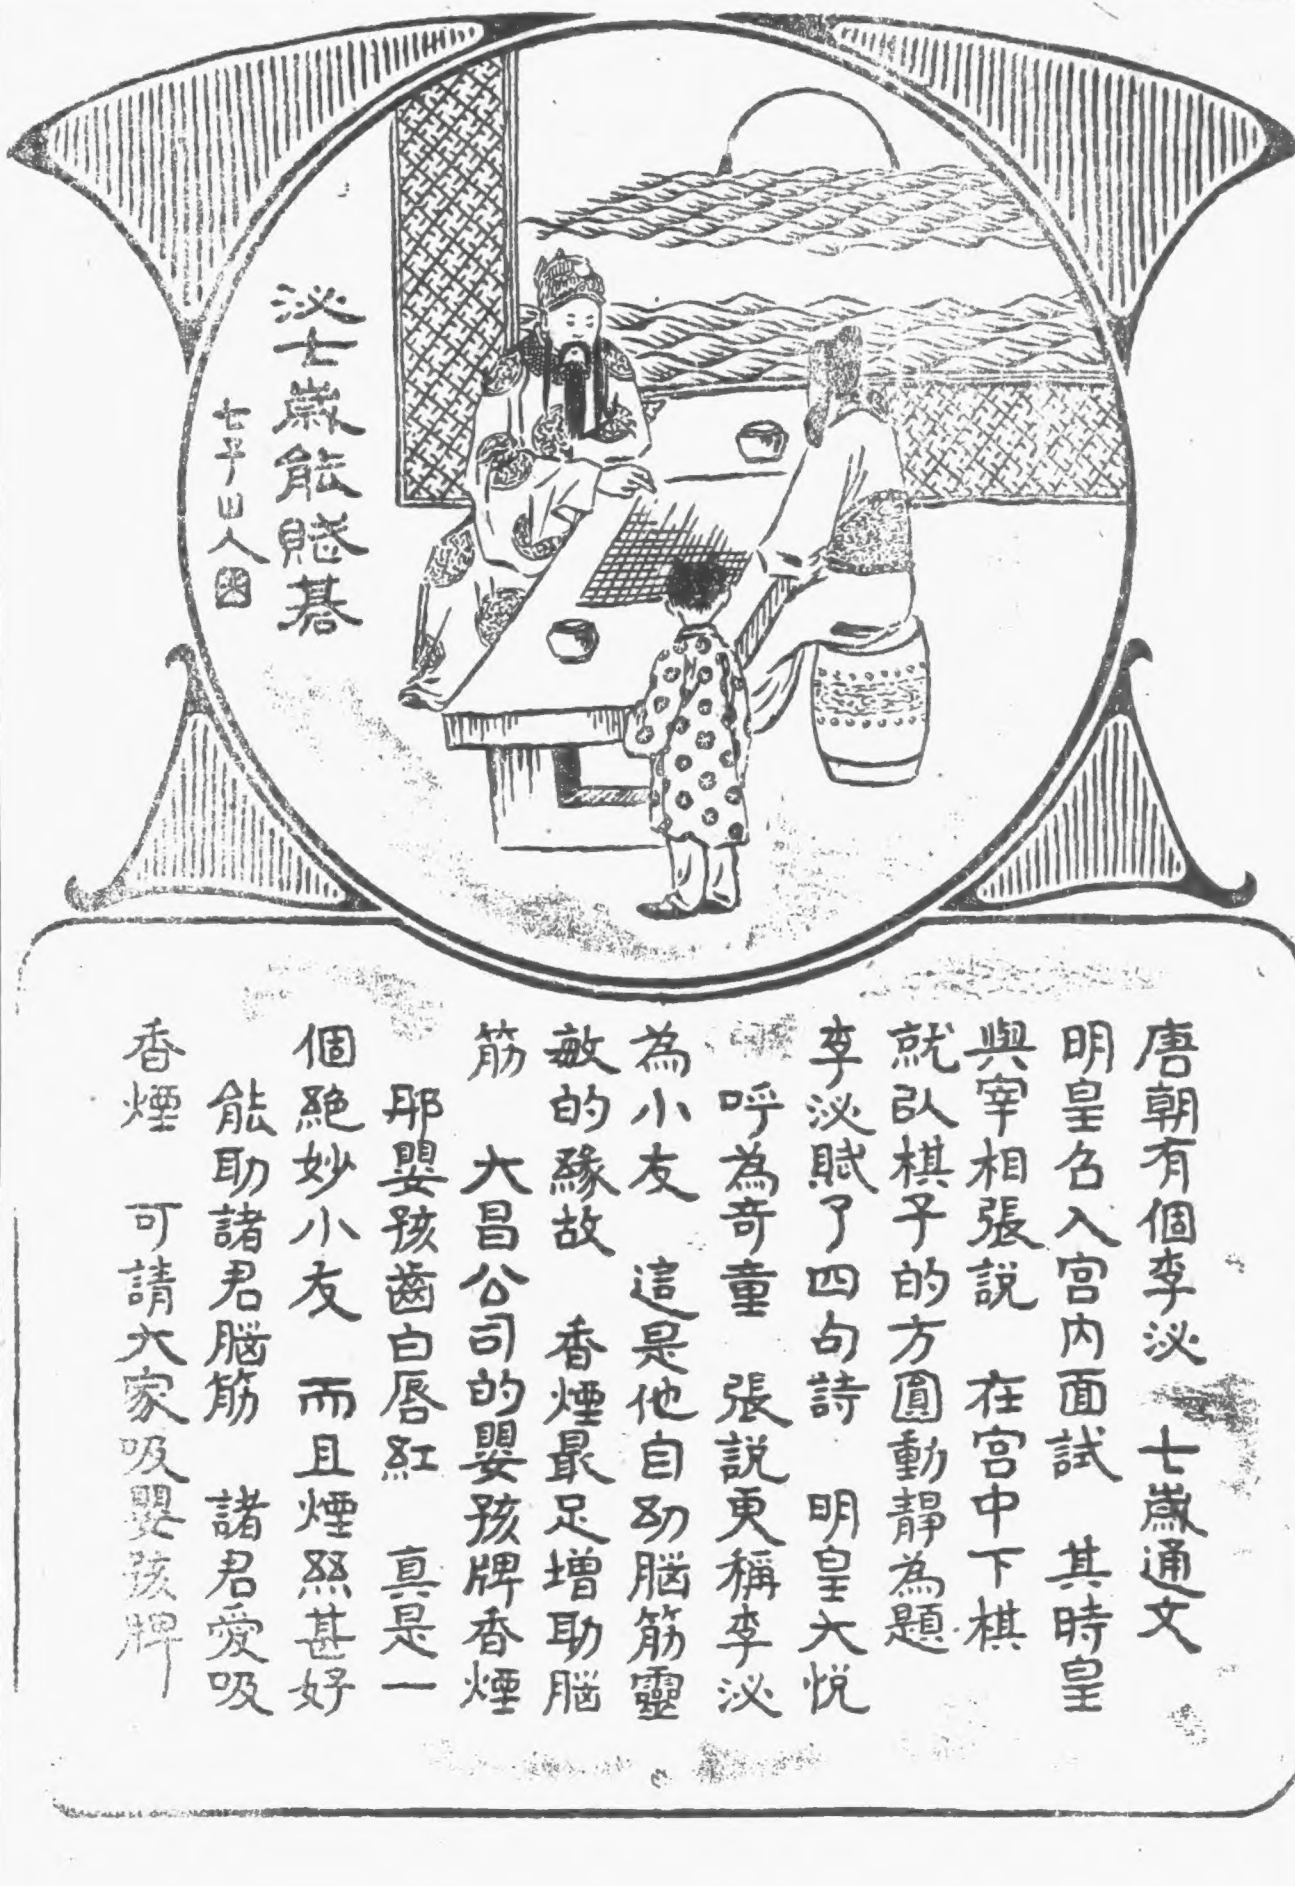 泌七歲能賦碁
七子山人
唐朝有個李泌　七歲通文
明皇召入宮內面試　其時皇
與宰相張説　在宮中下棋
就以棋子的方圓動靜為題
李泌賦了四句詩　明皇大悅
呼為奇童　張説更稱李泌
為小友　這是他自幼腦筋靈
敏的緣故　香煙最足增助腦
筋　大昌公司的嬰孩牌香煙
那嬰孩齒白唇紅　真是一
個絕妙小友　而且煙絲甚好
能助諸君腦筋　諸君愛吸
香煙　可請大家吸嬰孩牌